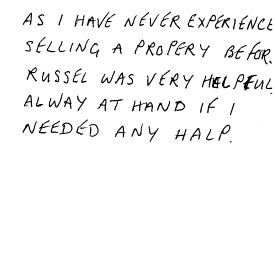 AS I HAVE NEVER EXPERIENCE
SELLING A PROPERY BEFOR
RUSSEL WAS VERY HELPFUL,
ALWAY AT HAND IF I
NEEDED ANY HALP.